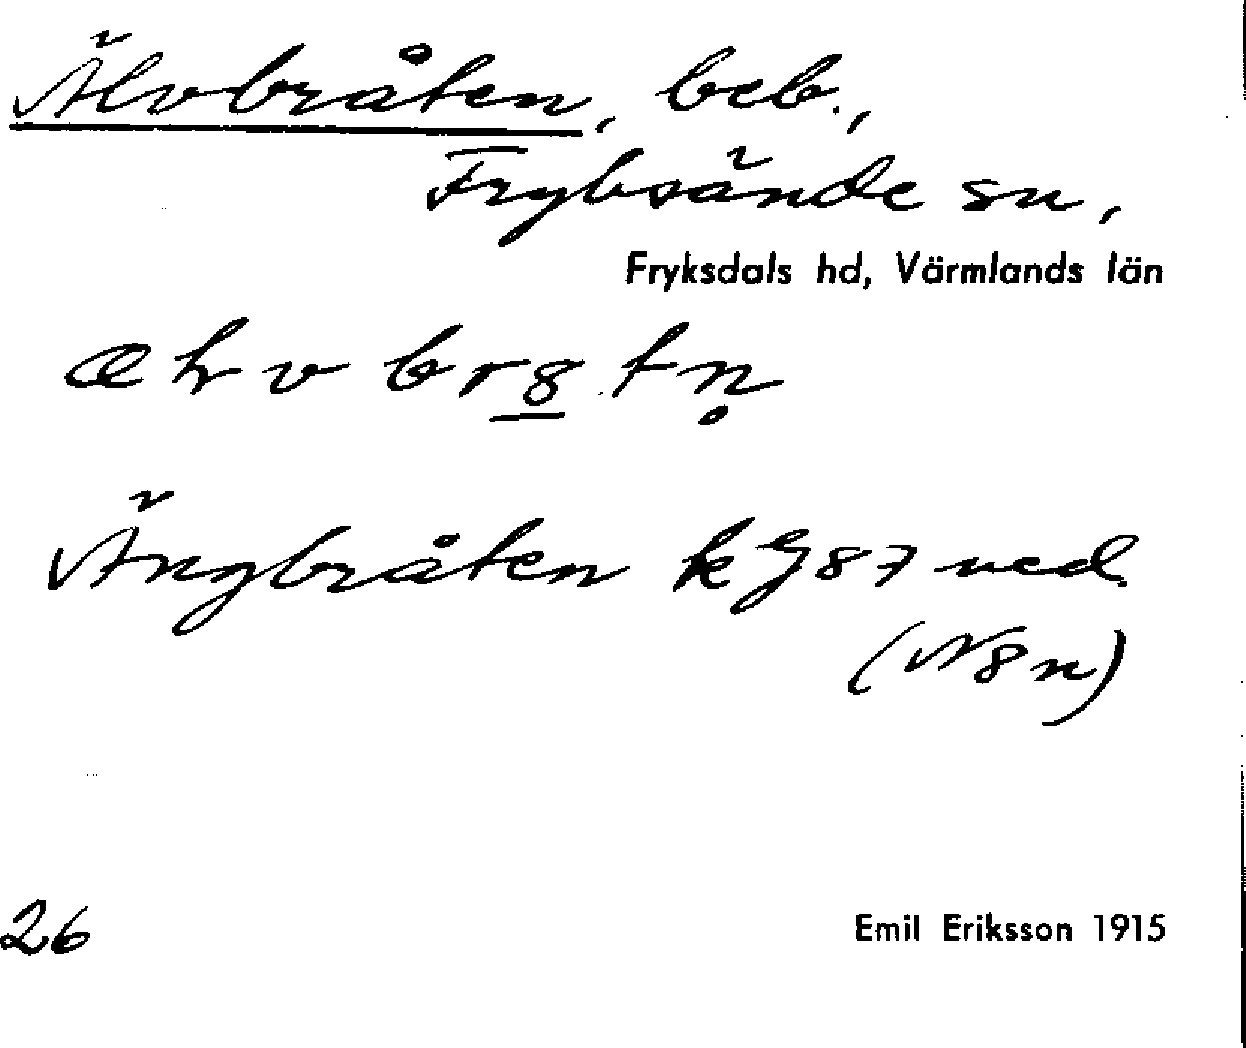 Älvbråten, beb.,
Fryksände sn,
Fryksdals hd, Värmlands län
Ängbråten kG87 ned
(N8n)
26
Emil Eriksson 1915